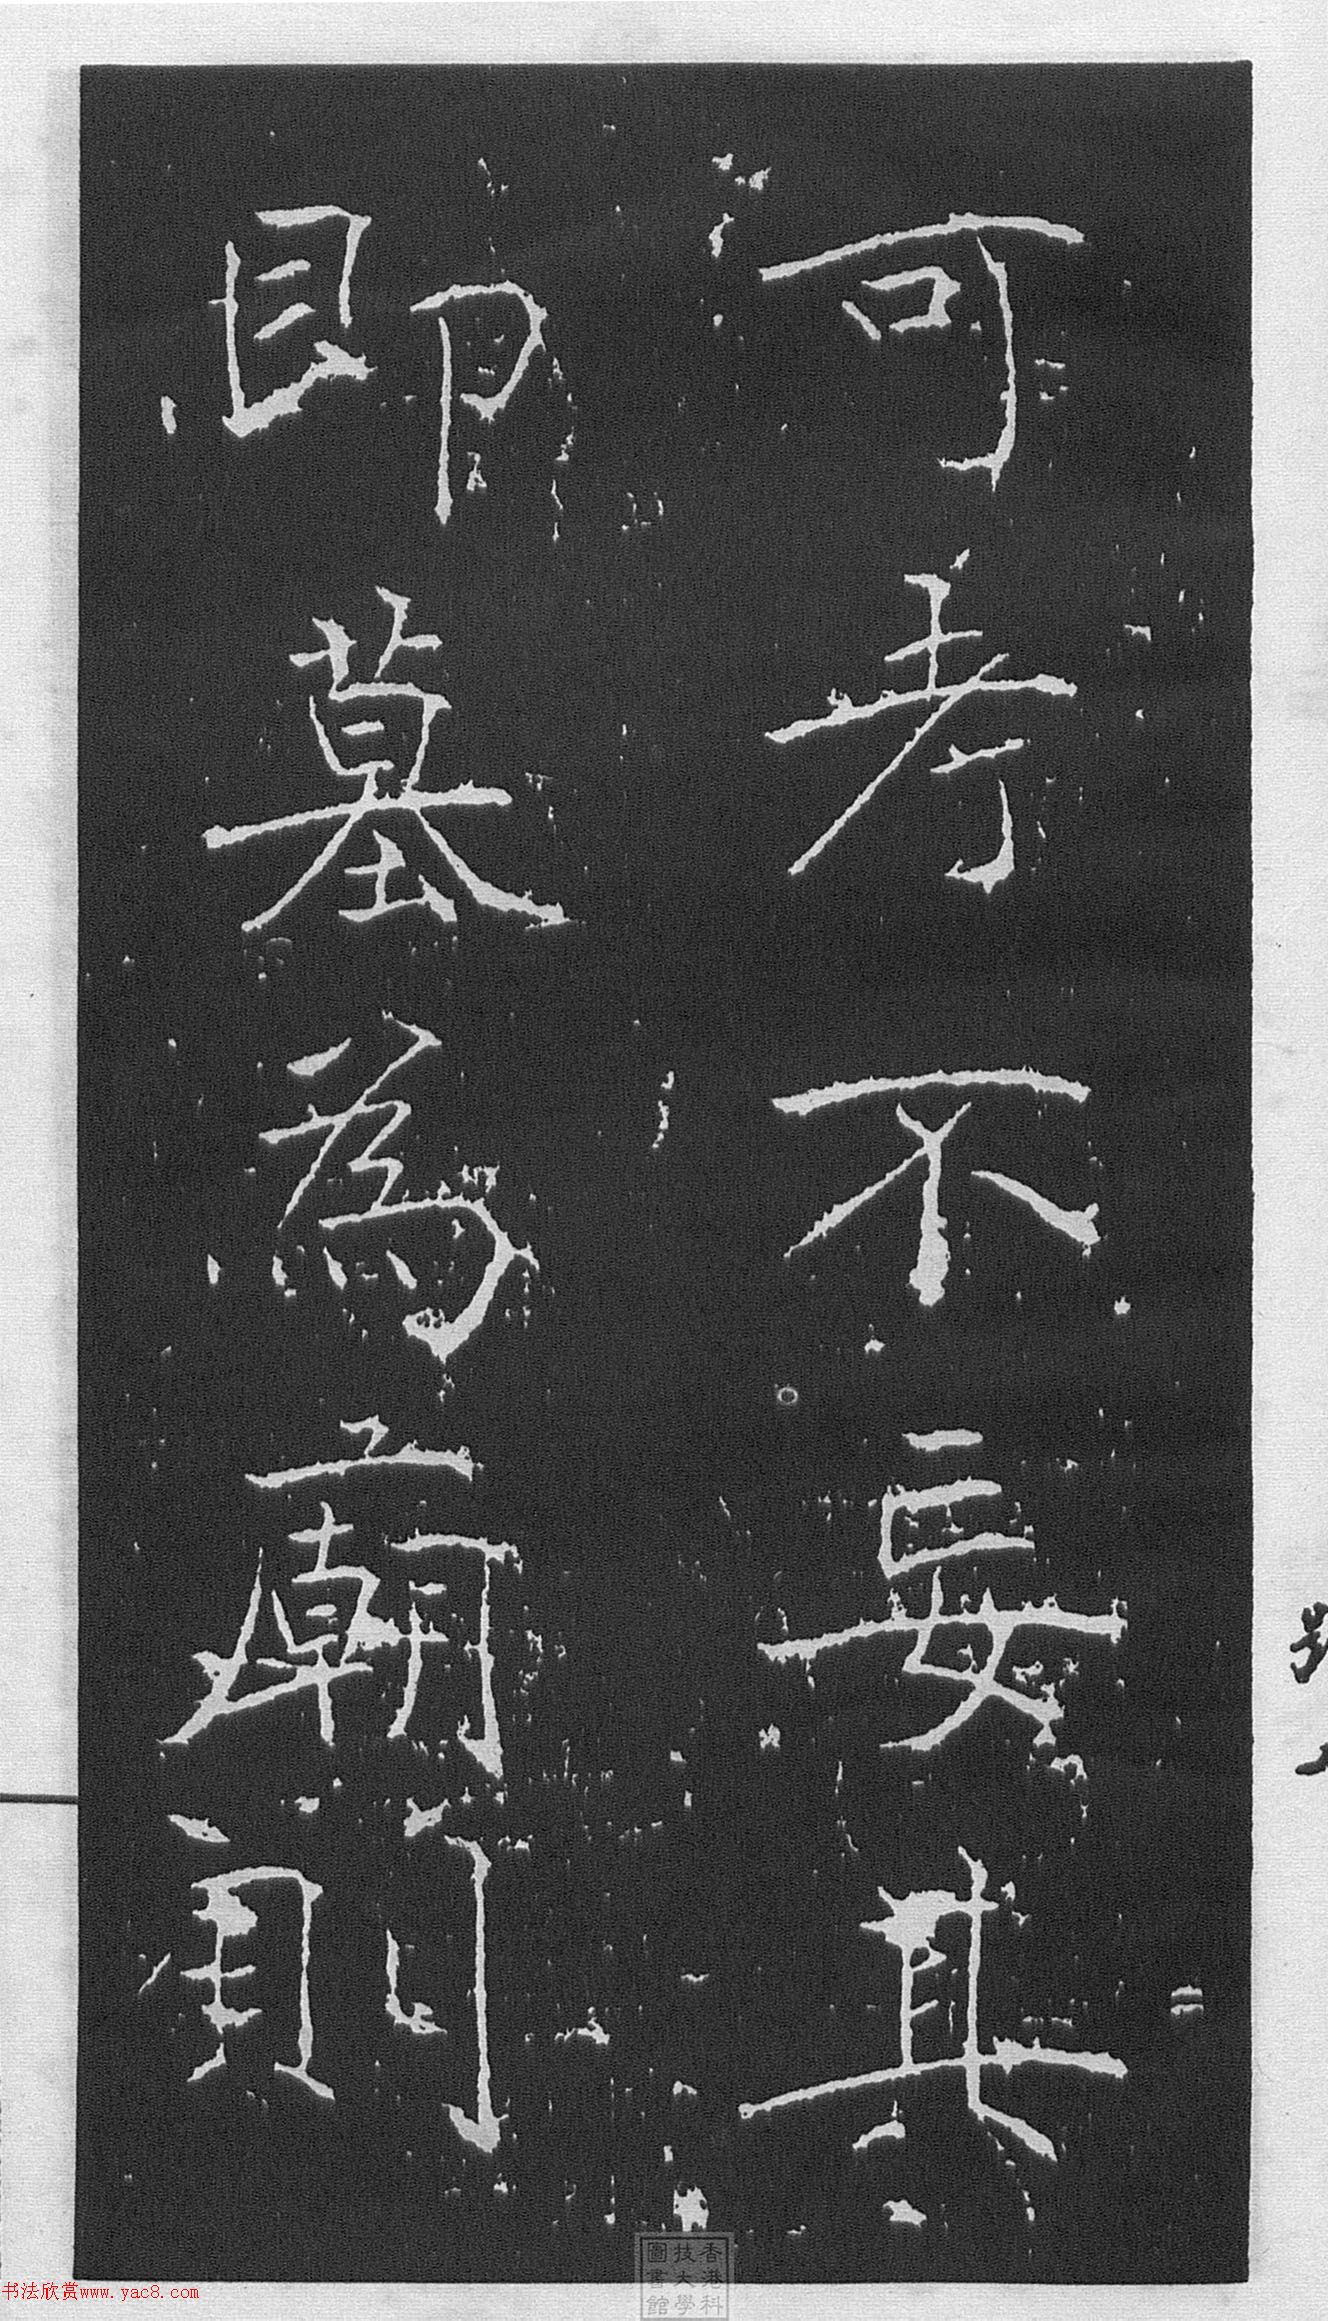 可考不妄其
即墓為廟則
香港科
技大學
圖書館
书法欣赏www.yac8.com